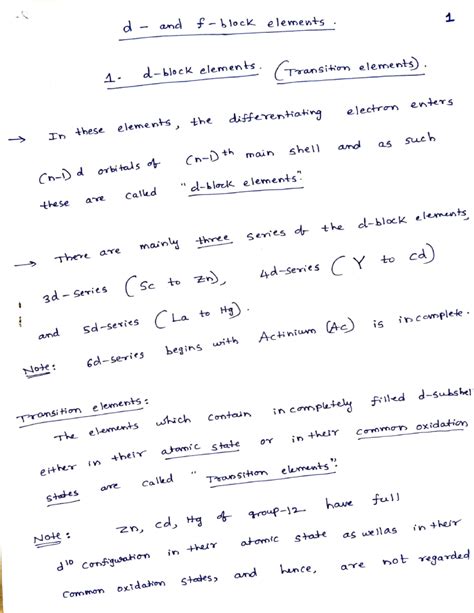 d - and f-block elements. 1
1. d-block elements. (Transition elements).
→ In these elements, the differentiating electron enters
(n-1) d orbitals of (n-1)th main shell and as such
these are called "d-block elements".
→ There are mainly three series of the d-block elements,
3d-series (Sc to Zn), 4d-series (Y to cd)
and 5d-series (La to Hg).
Note: 6d-series begins with Actinium (Ac) is incomplete.
Transition elements:
The elements which contain incompletely filled d-subshel
either in their atomic state or in their common oxidation
states are called "Transition elements".
Note: Zn, cd, Hg of group-12 have full
d10 configuration in their atomic state as wellas in their
common oxidation states, and hence, are not regarded